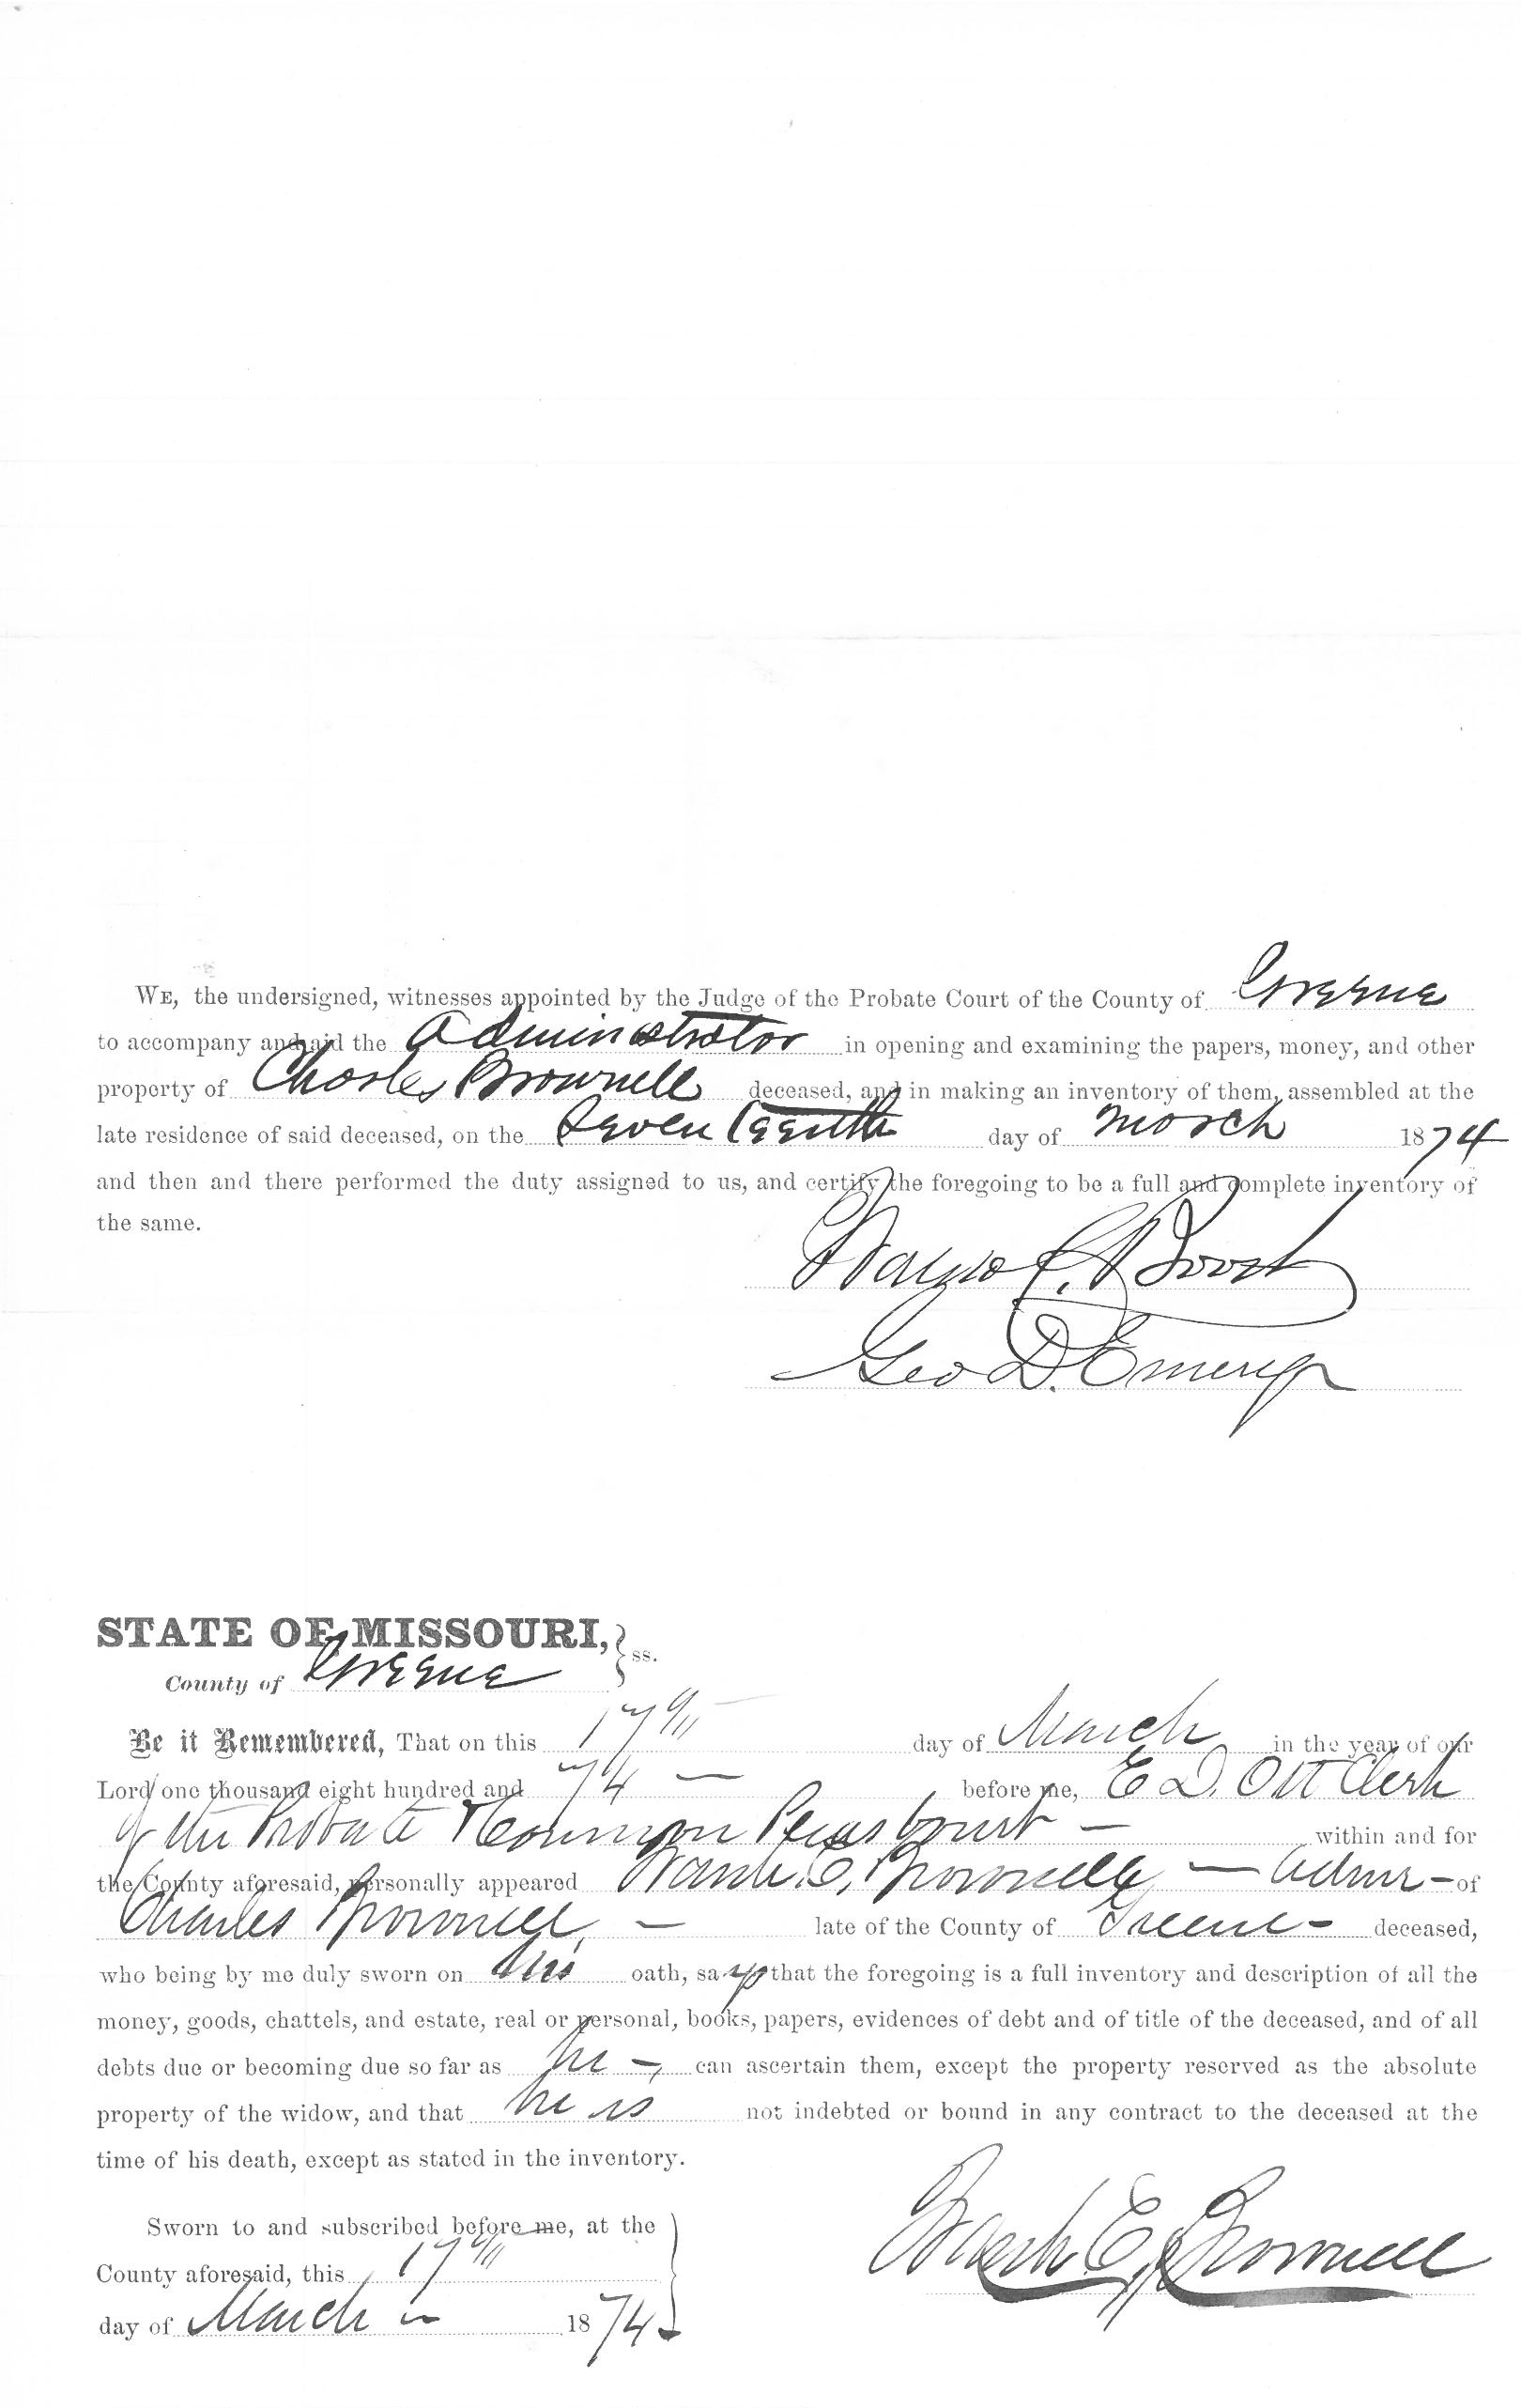 WE, the undersigned, witnesses appointed by the Judge of the Probate Court of the County of Greene
to accompany and aid the Administrator in opening and examining the papers, money, and other
property of Charles Brownell deceased, and in making an inventory of them, assembled at the
late residence of said deceased, on the Seventeenth day of March 1874
and then and there performed the duty assigned to us, and certify the foregoing to be a full and complete inventory of
the same.
C. Boost
Geo D. Emery
STATE OF MISSOURI, } ss.
County of Greene
Be it Remembered, That on this 17th day of March in the year of our
Lord one thousand eight hundred and 74 — before me, E D. Ott Clerk
of the Probate & Common Pleas Court — within and for
the County aforesaid, personally appeared E. Brownell — Admr - of
Charles Brownell, — late of the County of Greene - deceased,
who being by me duly sworn on his oath, says that the foregoing is a full inventory and description of all the
money, goods, chattels, and estate, real or personal, books, papers, evidences of debt and of title of the deceased, and of all
debts due or becoming due so far as he —, can ascertain them, except the property reserved as the absolute
property of the widow, and that he is not indebted or bound in any contract to the deceased at the
time of his death, except as stated in the inventory.
Sworn to and subscribed before me, at the
County aforesaid, this 17th
day of March 1874
E. Brownell